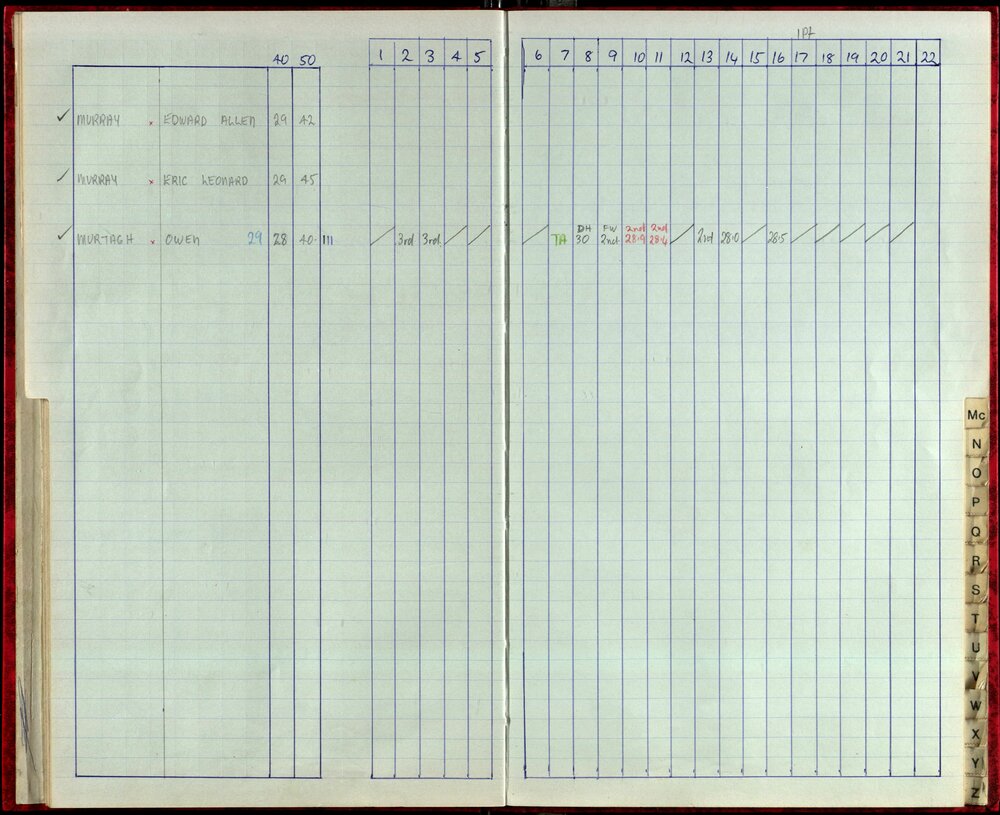 1Pt
40 50 1 2 3 4 5 6 7 8 9 10 11 12 13 14 15 16 17 18 19 20 21 22
✓ MURRAY × EDWARD ALLEN 29 42
✓ MURRAY × ERIC LEONARD 29 45
DH FW 2nd 2nd
✓ MURTAGH × OWEN 29 28 40. 111 / 3rd 3rd / / / TA 30 2nd 28.9 28.4 / 2nd 28.0 / 28.5 / / / / /
Mc
N
O
P
Q
R
S
T
U
V
W
X
Y
Z